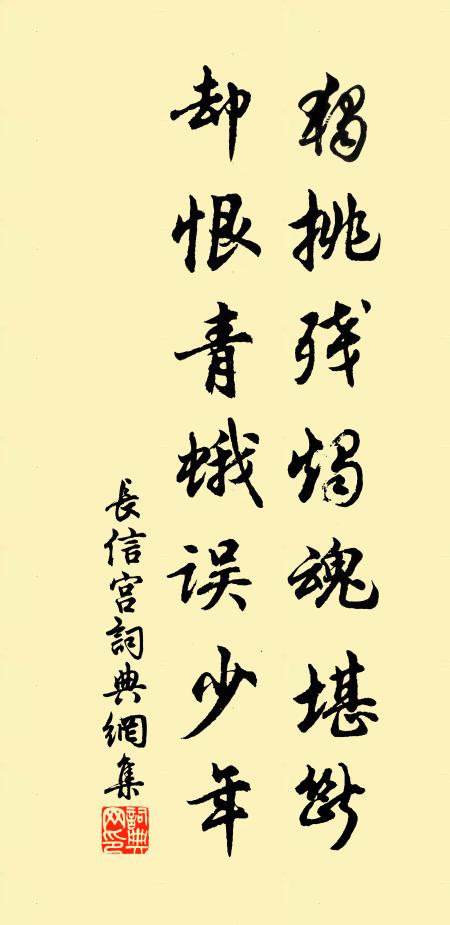 獨挑残燭魂堪斷
却恨青蛾误少年
長信宮詞典網集
詞典网印